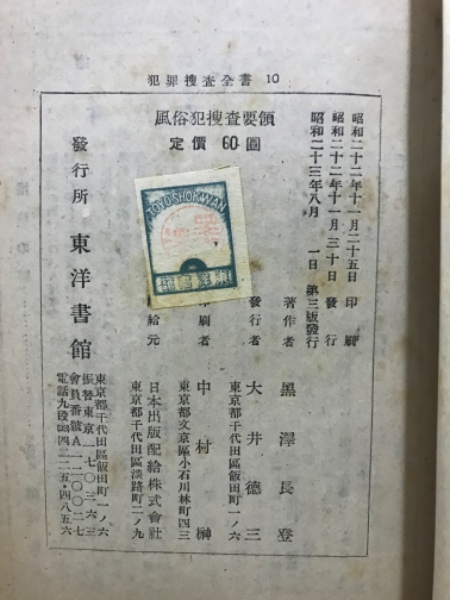 犯罪捜査全書 10
風俗犯捜査要領
定價 60圓
昭和二十二年十一月二十五日 印刷
昭和二十二年十一月三十日 發行
昭和二十三年八月 一日 第三版發行
著作者 黑澤長登
發行者 大井德三
東京都千代田區飯田町一ノ六
刷者 中村榊
東京都文京區小石川林町四三
給元 日本出版配給株式會社
東京都千代田區淡路町二ノ九
發行所 東洋書館
東京都千代田區飯田町一ノ六
振替東京一七〇三六三
會員番號A一一〇〇二七
電話九段(33)四二二五・四八五六
TOYOSHOKWAN